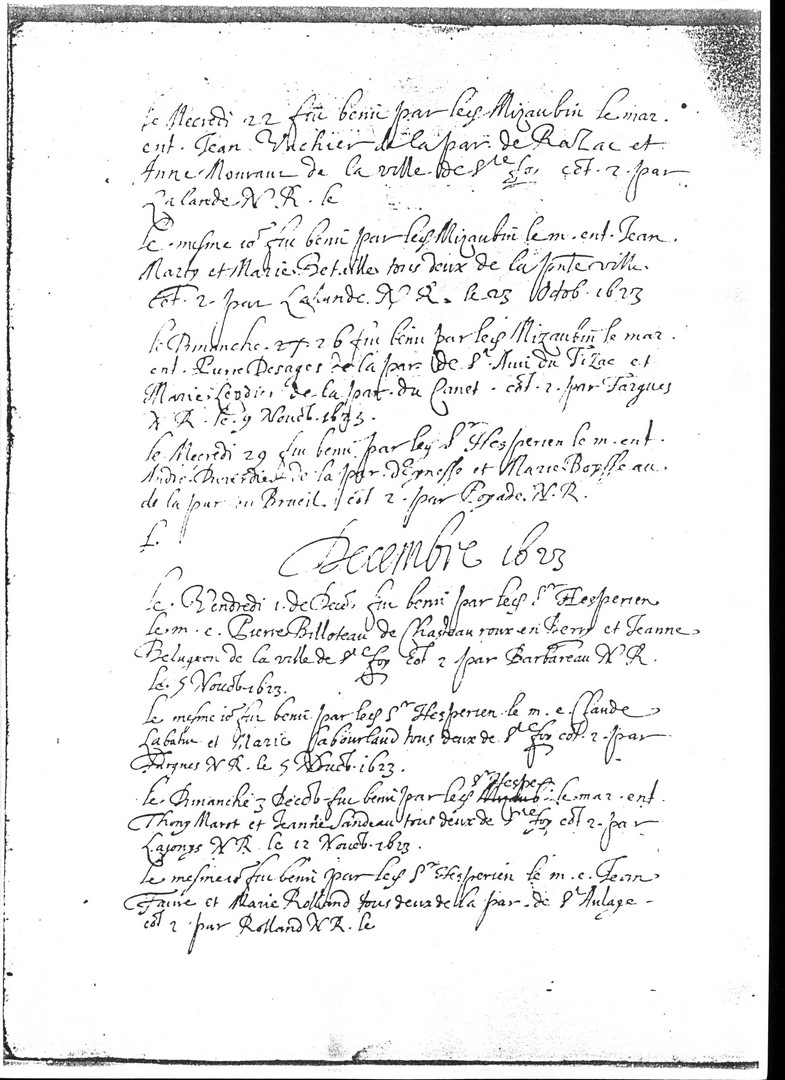 le Mecredi 22 fut benit par led. Sr Mizaubin le mar.
ent. Jean Vachier de la par. de Razac et
Anne Mourau de la ville de Ste foy cot. 2. par
Lalande N. R. le
le mesme jor fut benit par led. Sr Mizaubin le m. ent. Jean
Marty et Marie Betaille tous deux de la pnte ville.
Cot. 2. par Lalande N R. le 23 Octob. 1623
le Dimanche 26 fut benit par led. Sr Mizaubin le mar.
ent. Pierre Desages de la par. de St. Avit du Tizac et
Marie Leydier de la par. du Canet. cot. 2. par Fargues
N R. le 9 Noveb. 1623.
le Mecredi 29 fut benit par led. Sr Hesperien le m. ent.
André de la par. d'Eynesse et Marie
de la par du Brueil. cot 2. par Poyade. N. R.
Decembre 1623
le. Vendredi 1. de Deceb. fut benit par led. Sr Hesperien
le m. e. Pierre Billoteau de Chasteau roux en berry et Jeanne
de la ville de Ste foy Cot 2 par Barbareau N R.
le. 5 Noveb. 1623.
le mesme jor fut benit par led. Sr Hesperien le m. e. Claude
Labatut et Marie Sabourland tous deux de Ste foy cot. 2. par
Fargues N R. le 5 Noveb. 1623.
le Dimanche 3 Deceb. fut benit par led. Sr Hesper. le mar. ent.
Thony Marot et Jeanne Sandeau tous deux de Ste foy cot 2. par
Lajonys N R. le 12 Noveb. 1623.
le mesme jor fut benit par led. Sr Hesperien le m. e. Jean
Faure et Marie Rolland tous deux de la par. de St Aulaye
cot 2 par Rolland N R. le